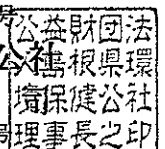 公益財団法
人島根県環
公社
境保健公社
理事長之印